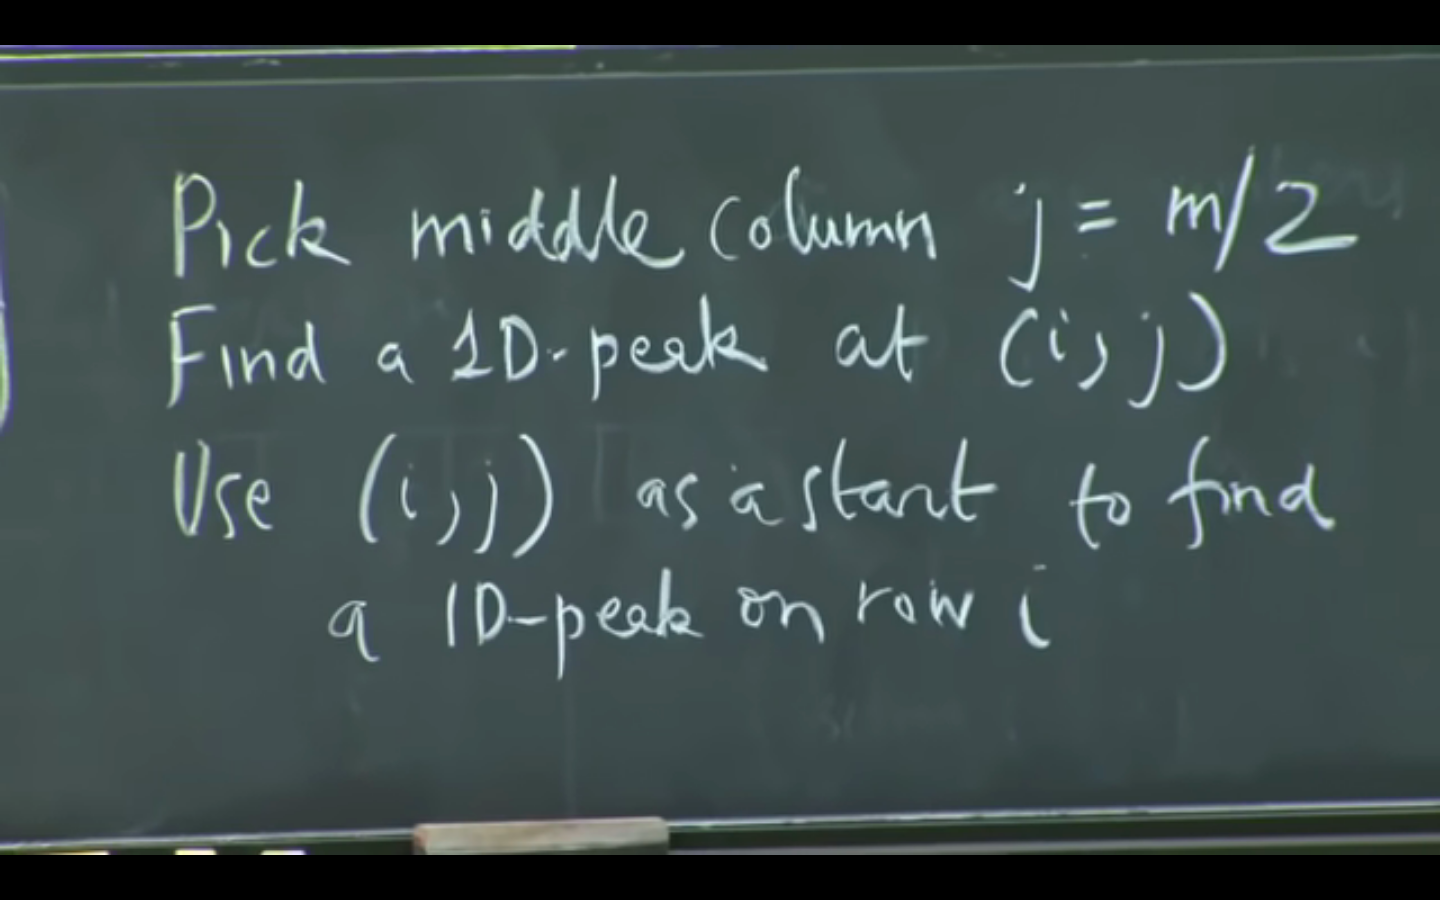 Pick middle column j = m/2
Find a 1D-peak at (i,j)
Use (i,j) as a start to find
a 1D-peak on row i